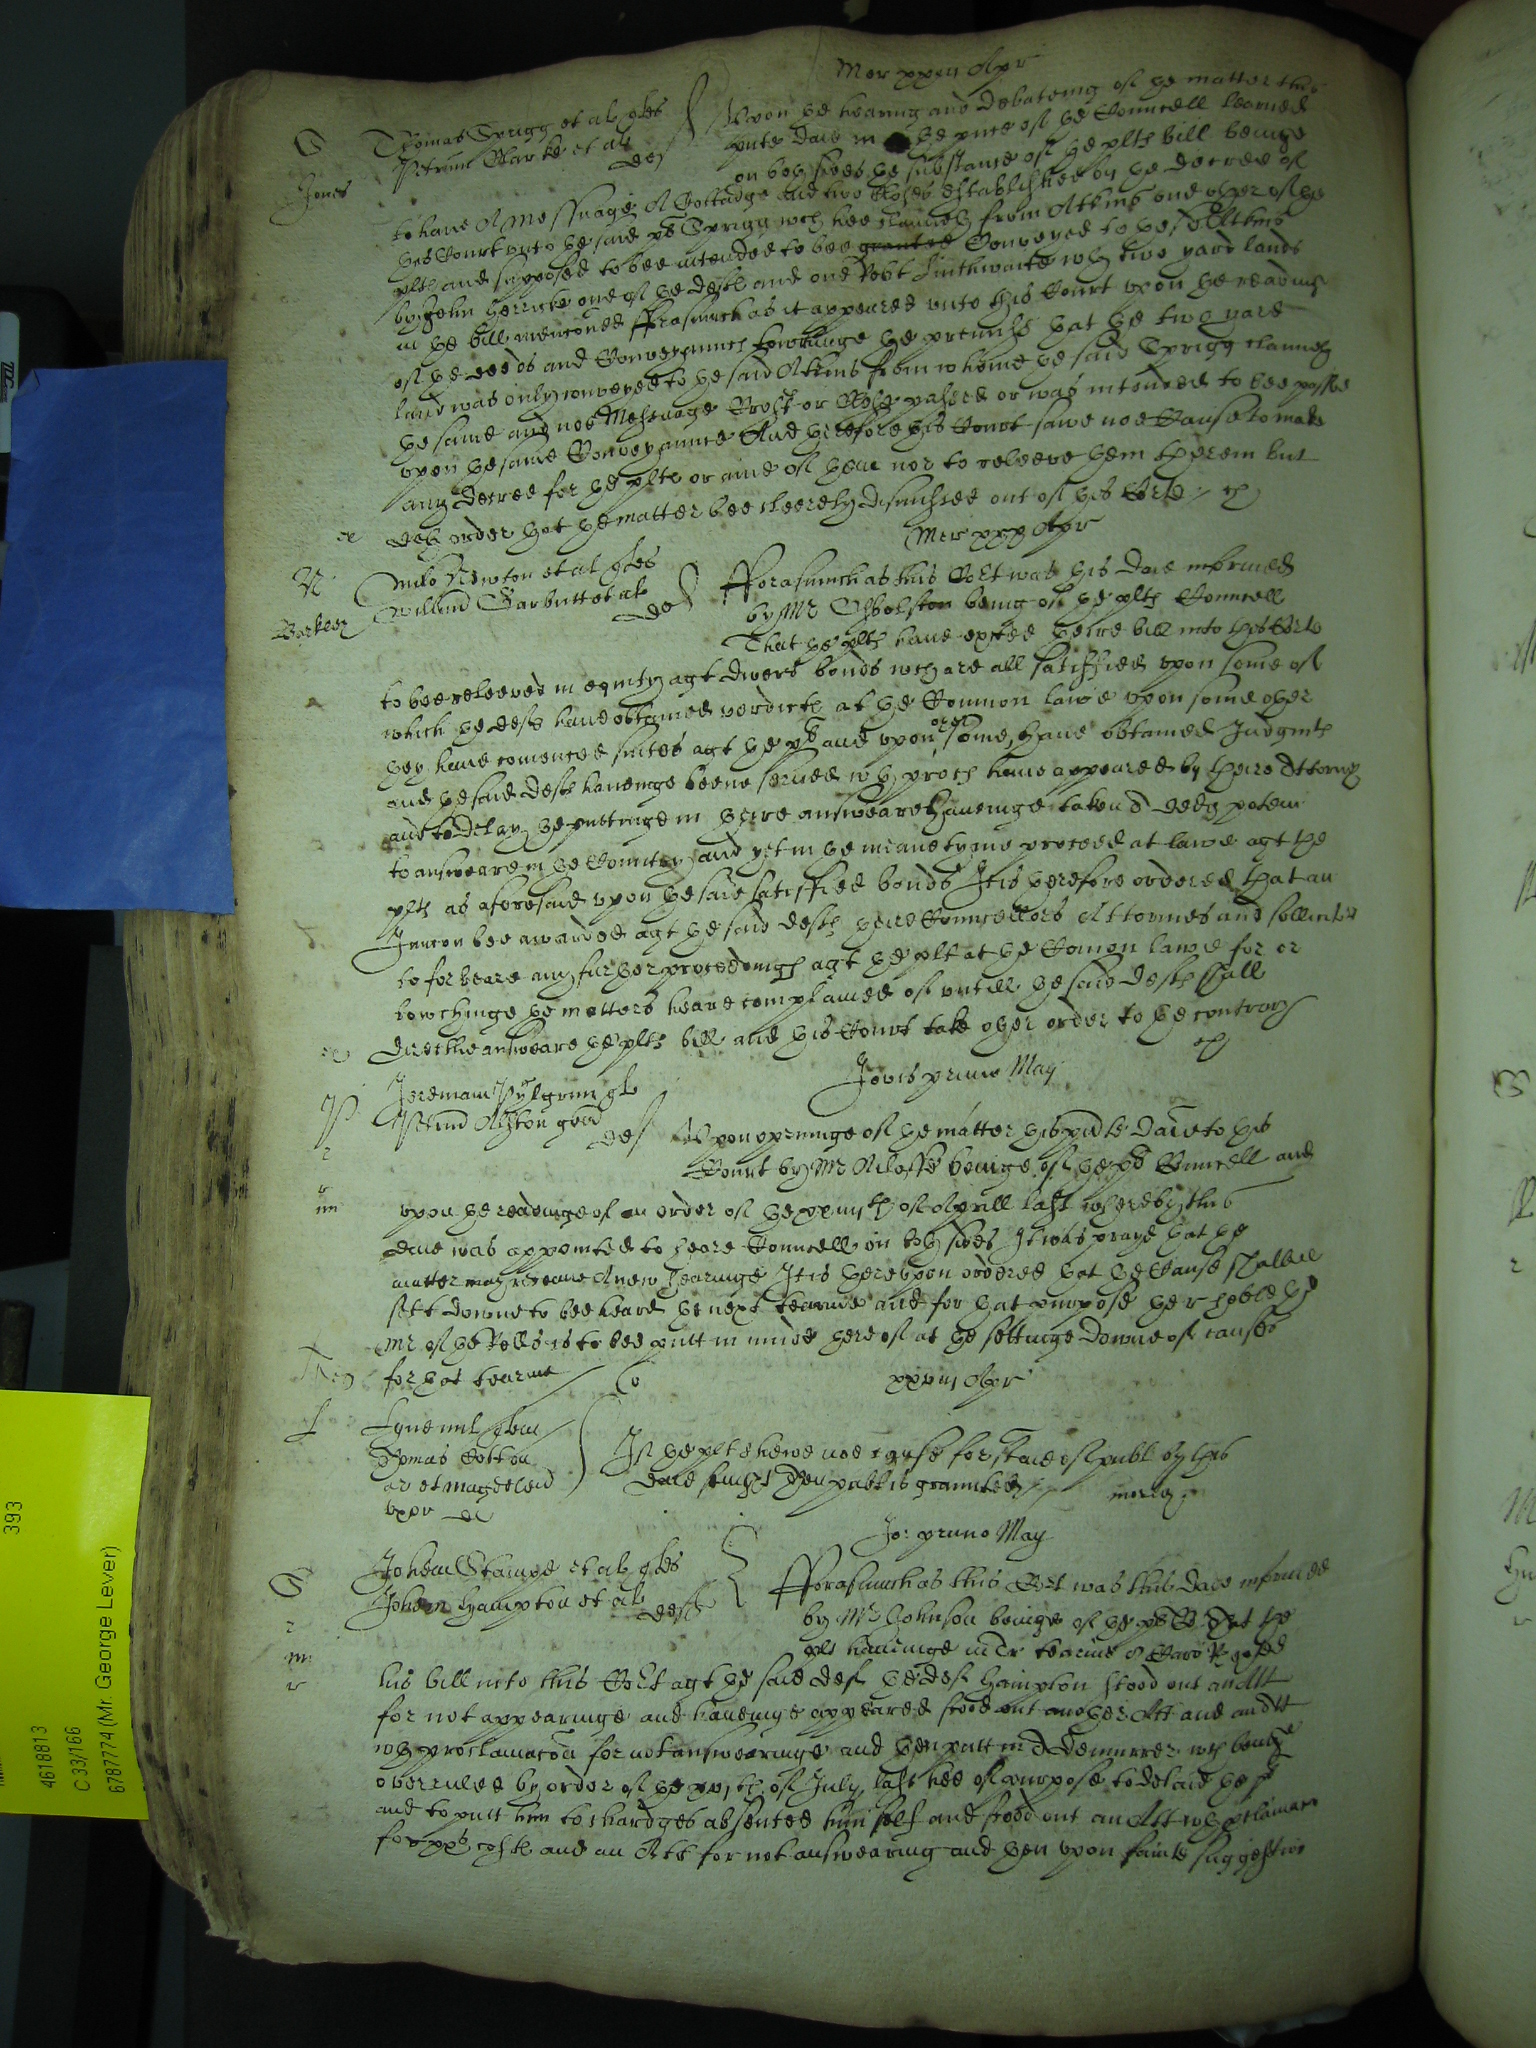 Mer xxx Apr
S Thomas Sprigg et al ples
Petrum Clarke et al
def
Jones
Upon the hearing and debateing of the matter this
pnte daie in the pnce of the Councell learned
on both sides the substance of the plts bill beinge
to have A Messuage A Cottadge and two Closes established by the decree of
this Court unto the said pl Sprigg wch hee claimeth from Atkins one other of the
plts and supposed to bee intended to bee granted Conveyed to the sd Atkins
by John Herricke one of the defts and one Robt Linthwaite wth two yard lands
in the bill mencioned fforasmuch as it appeared unto this Court upon the readinge
of the deeds and Conveyaunces towchinge the premises that the two yard
land was only conveyed to the said Atkins from whome the said Sprigg claimeth
the same and noe Messuage Croft or Close passed or was intended to bee passed
upon the same Conveyaunce And therefore this Court sawe noe Cause to make
any decree for the plts or anie of them nor to releeve them therein but
doth order that the matter bee cleerely dismissed out of this Corte
Mer xxx Apr
N Milo Newton et al ples
Willmd Garbutt et al
def
Barkley
fforasmuch as this Cort was this daie informed
by Mr being of the plts Councell
That the plts have exhited theire bill into this Corte
to bee releeved in equity agt divers bonds wch are all satisffied upon some of
which the defts have obtained verdicts at the Common lawe upon some other
they have comenced suites agt the pl and upon other some have obtained Judgmts
and the said defts haveinge beene served wth proces have appeared by theire Attorney
and to delay the puttinge in theire answeare haveinge taken a dedi potem
to answeare in the Country and yet in the meane tyme proceed at lawe agt the
plts as aforesaid upon the said satisffied bonds It is therefore ordered that an
Iniuncon bee awarded agt the said defts theire Councellors Attornies and sollicitors
to forbeare any further proceedings agt the plt at the Comon lawe for or
towchinge the matters heare complained of untill the said defts shall
directlie answeare the plts bill and this Court take other order to the contrary
Jovis primo May
P Jeremiam Pylgrim ple
Alston
def
Upon openinge of the matter this pnte daie to this
Court by Mr beinge of the pl Councell and
upon the readinge of an order of the of Aprill last whereby this
daie was appointed to heare Councell on both sides It was prayd that the
matter may receave A new hearinge It is thereupon ordered that the Cause shalbee
sett downe to bee heard the next tearme and for that purpose the r hoble the
Mr of the Rolls is to bee putt in minde thereof at the settinge downe of causes
for that tearme
xxviij Apr
L Lyne quer
Thomas Cotton
ar et Magdelend
uxor def
If the plt shewe noe cause for staie of publ by this
daie sennight then publ is graunted
Jo: primo May
S Johem Stampe et al ples
Johem Hampton et al
defts
fforasmuch as this Cort was this daie informed
by Mr Johnson beinge of the pl C that the
plt haveinge in Tr tearme exhited
his bill into this Cort agt the said def the def Hampton stood out an Att
for not appearinge and haveinge appeared stood out another Att and an Att
wth proclamacon for not answearinge and then putt in A demurrer wch beinge
overruled by order of the of July last hee of purpose to delaie the pl
and to putt him to chardges absented himself and stood out an Att wth proclamacon
for xxs costs and an Att for not answearing and then upon faint suggestions
393
4618813
C 33/166
6787774 (Mr. George Lever)